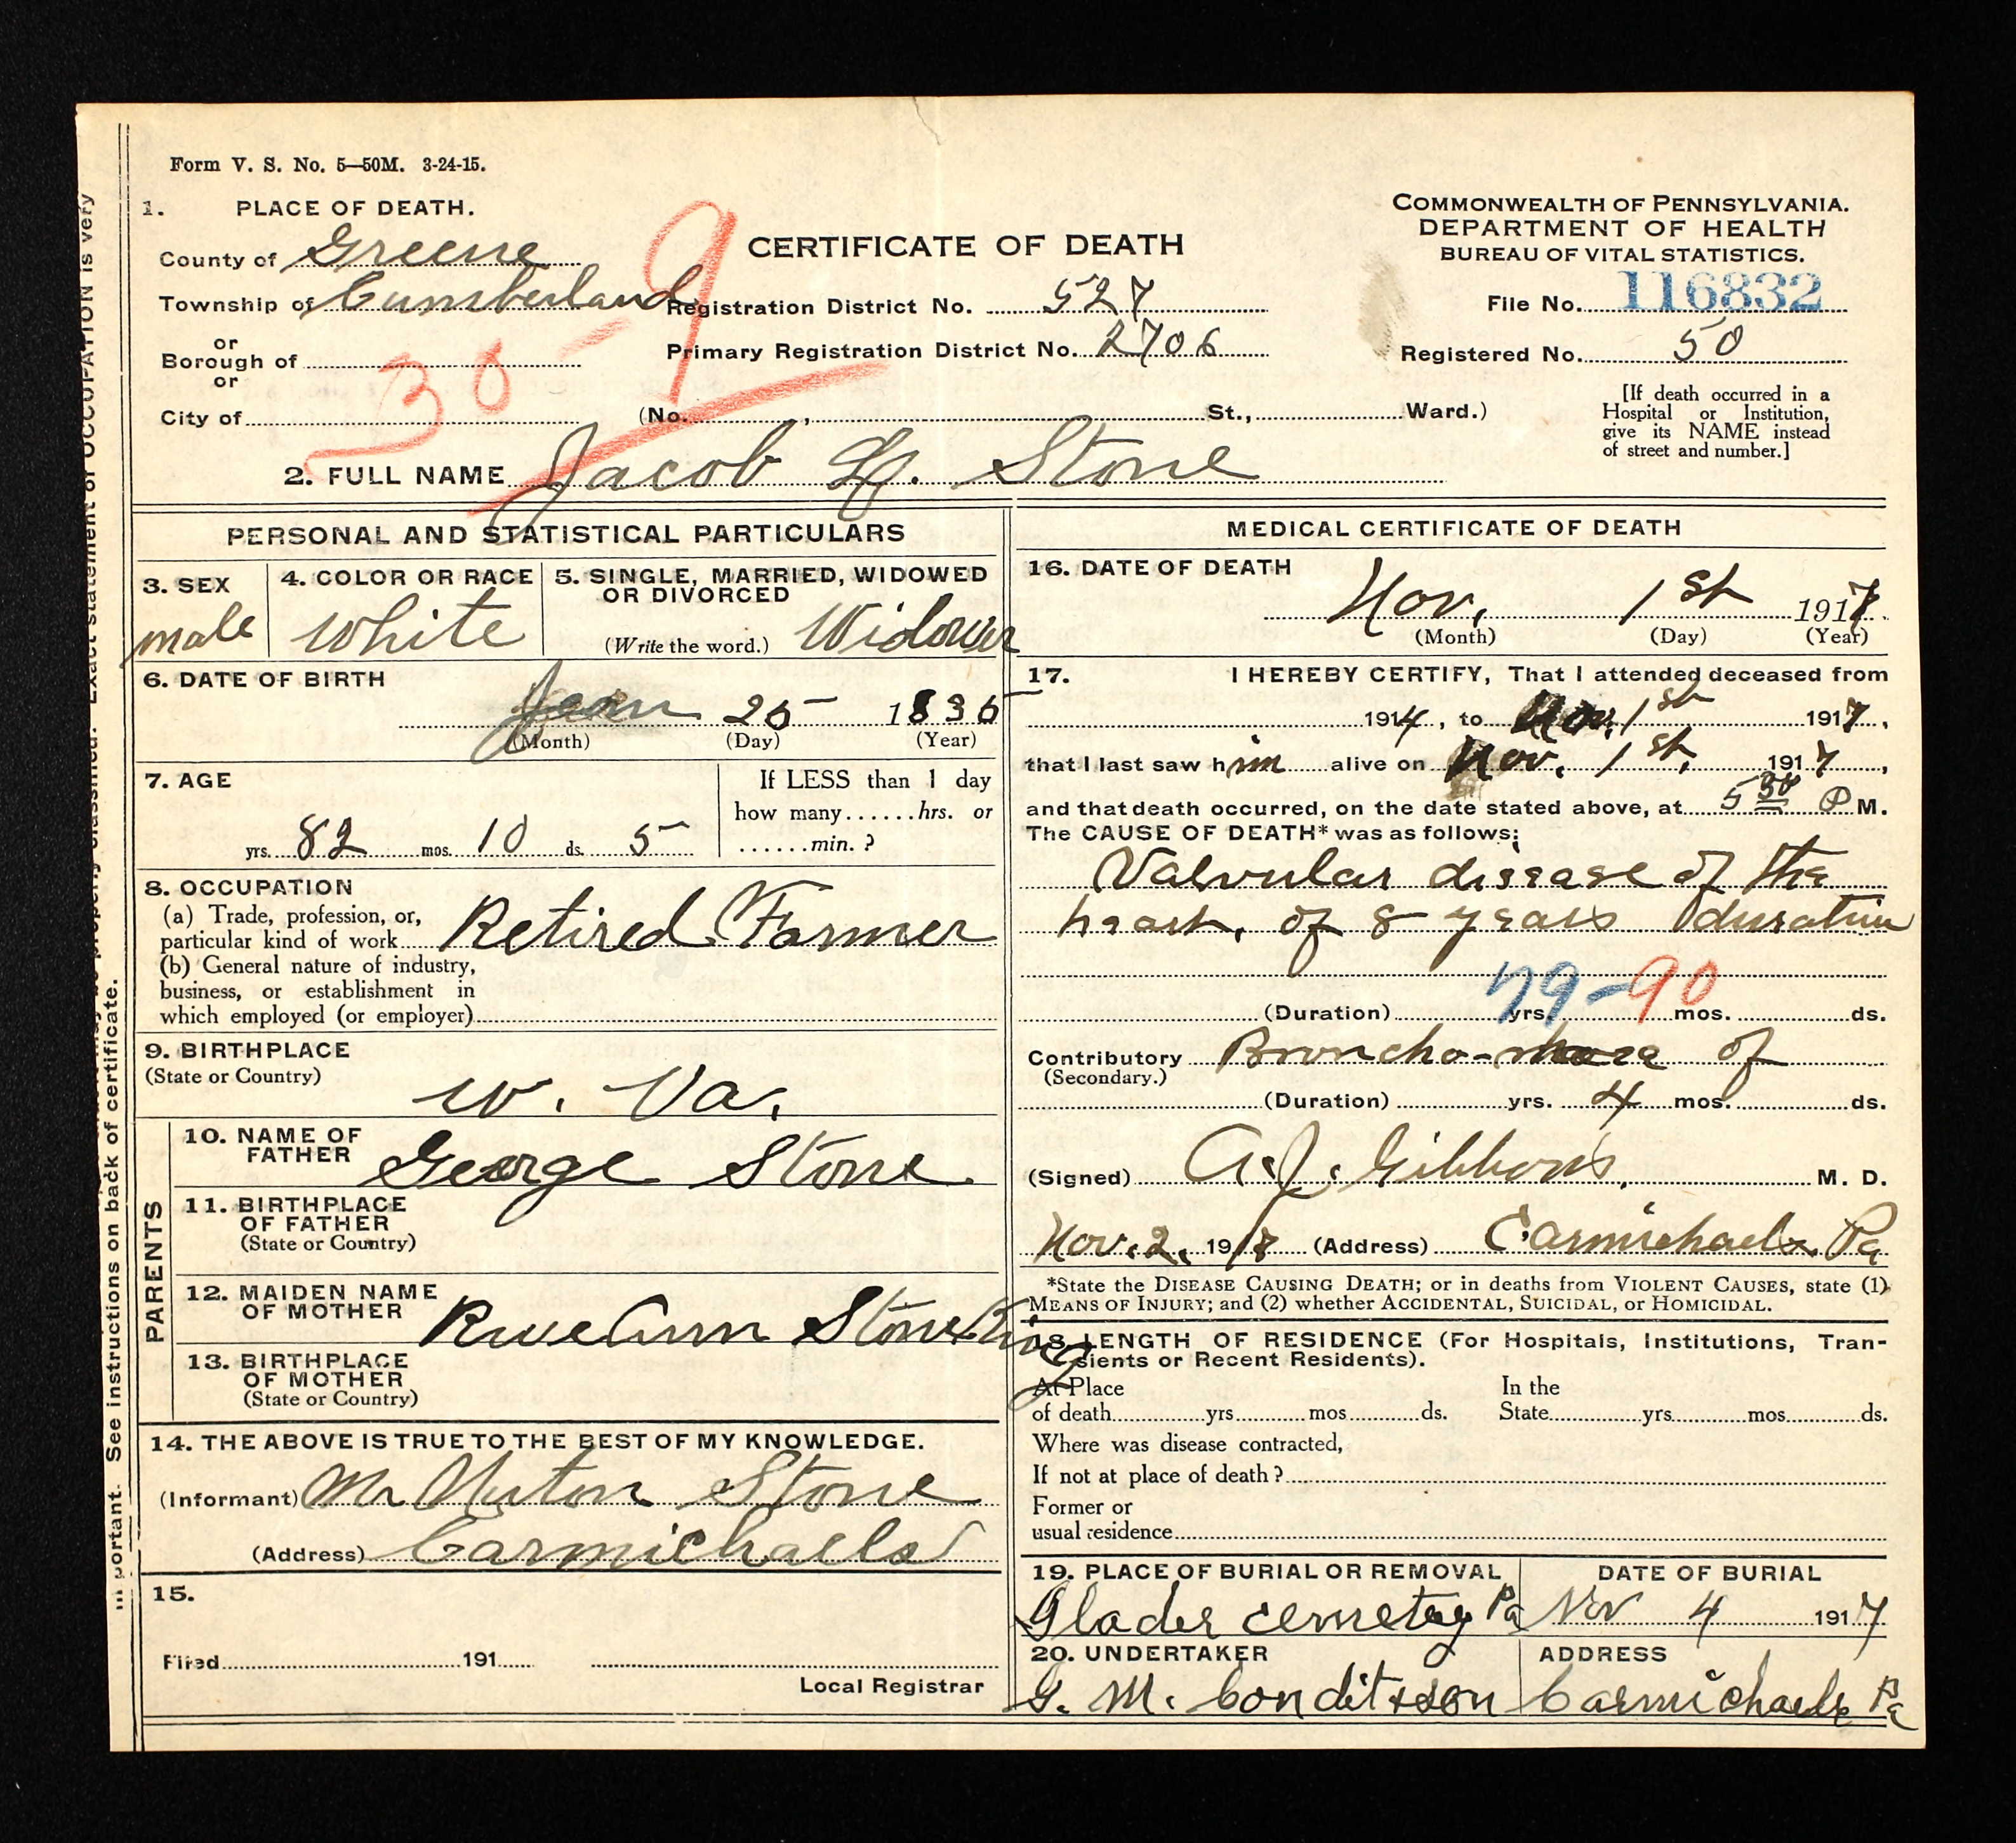 Form V. S. No. 5—50M. 3-24-15.
1. PLACE OF DEATH.
County of Greene
Township of Cumberland
or
Borough of
or
City of
30-9
CERTIFICATE OF DEATH
Registration District No. 527
Primary Registration District No. 2706
(No. , St., Ward.)
COMMONWEALTH OF PENNSYLVANIA.
DEPARTMENT OF HEALTH
BUREAU OF VITAL STATISTICS.
File No. 116832
Registered No. 50
[If death occurred in a
Hospital or Institution,
give its NAME instead
of street and number.]
2. FULL NAME Jacob L. Stone
PERSONAL AND STATISTICAL PARTICULARS
3. SEX
male
4. COLOR OR RACE
White
5. SINGLE, MARRIED, WIDOWED
OR DIVORCED
(Write the word.) Widower
6. DATE OF BIRTH
Jan 25 1835
(Month) (Day) (Year)
7. AGE
yrs. 82 mos. 10 ds. 5
If LESS than 1 day
how many......hrs. or
......min. ?
8. OCCUPATION
(a) Trade, profession, or,
particular kind of work Retired Farmer
(b) General nature of industry,
business, or establishment in
which employed (or employer)
9. BIRTHPLACE
(State or Country)
W. Va.
PARENTS
10. NAME OF
FATHER George Stone
11. BIRTHPLACE
OF FATHER
(State or Country)
12. MAIDEN NAME
OF MOTHER Stoneking
13. BIRTHPLACE
OF MOTHER
(State or Country)
14. THE ABOVE IS TRUE TO THE BEST OF MY KNOWLEDGE.
(Informant) Mr Stone
(Address) Carmichaels
15.
Filed 191
Local Registrar
MEDICAL CERTIFICATE OF DEATH
16. DATE OF DEATH
Nov. 1st 1917
(Month) (Day) (Year)
17. I HEREBY CERTIFY, That I attended deceased from
1914, to Nov. 1st 1917,
that I last saw him alive on Nov. 1st, 1917,
and that death occurred, on the date stated above, at 5 30 P M.
The CAUSE OF DEATH* was as follows:
Valvular disease of the
heart, of 8 years duration
79-90
(Duration) yrs. mos. ds.
Contributory Broncho- of
(Secondary.)
(Duration) yrs. 4 mos. ds.
(Signed) A. J. Gibbons, M. D.
Nov. 2, 1917 (Address) Carmichaels. Pa
*State the DISEASE CAUSING DEATH; or in deaths from VIOLENT CAUSES, state (1)
MEANS OF INJURY; and (2) whether ACCIDENTAL, SUICIDAL, or HOMICIDAL.
18. LENGTH OF RESIDENCE (For Hospitals, Institutions, Tran-
sients or Recent Residents).
At Place
of death yrs mos ds.
In the
State yrs mos ds.
Where was disease contracted,
If not at place of death ?
Former or
usual residence
19. PLACE OF BURIAL OR REMOVAL
Glades cemetery Pa
DATE OF BURIAL
Nov 4 1917
20. UNDERTAKER
G. M. Condit & son
ADDRESS
Carmichaels Pa
Exact statement of OCCUPATION is very
important. See instructions on back of certificate.